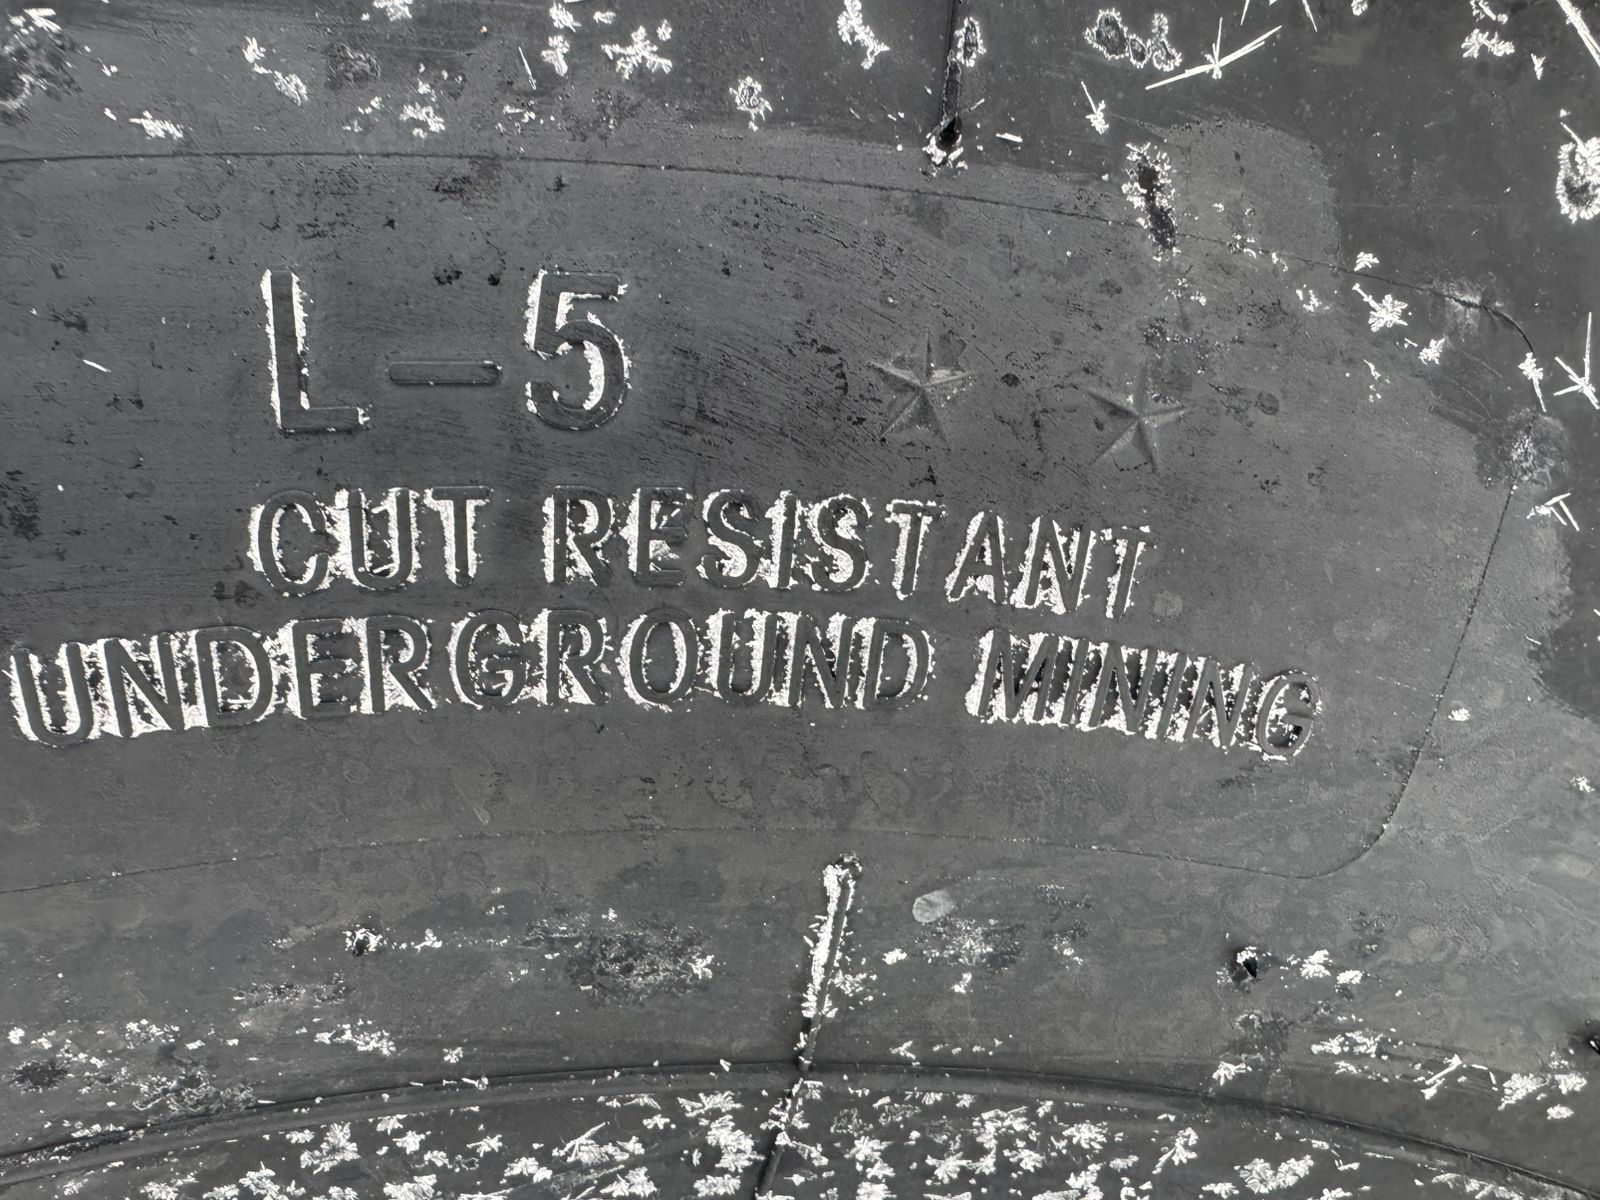 L-5 ★★
CUT RESISTANT
UNDERGROUND MINING